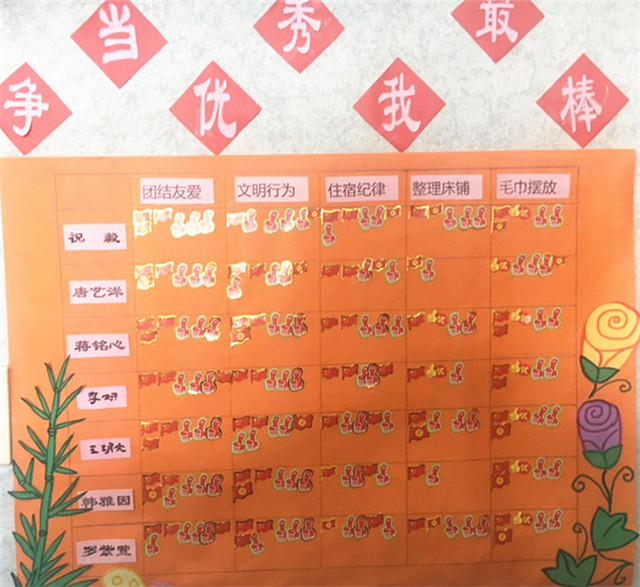 争当优秀我最棒
团结友爱 文明行为 住宿纪律 整理床铺 毛巾摆放
唐艺洋
蒋铭心
李妍
韩雅因